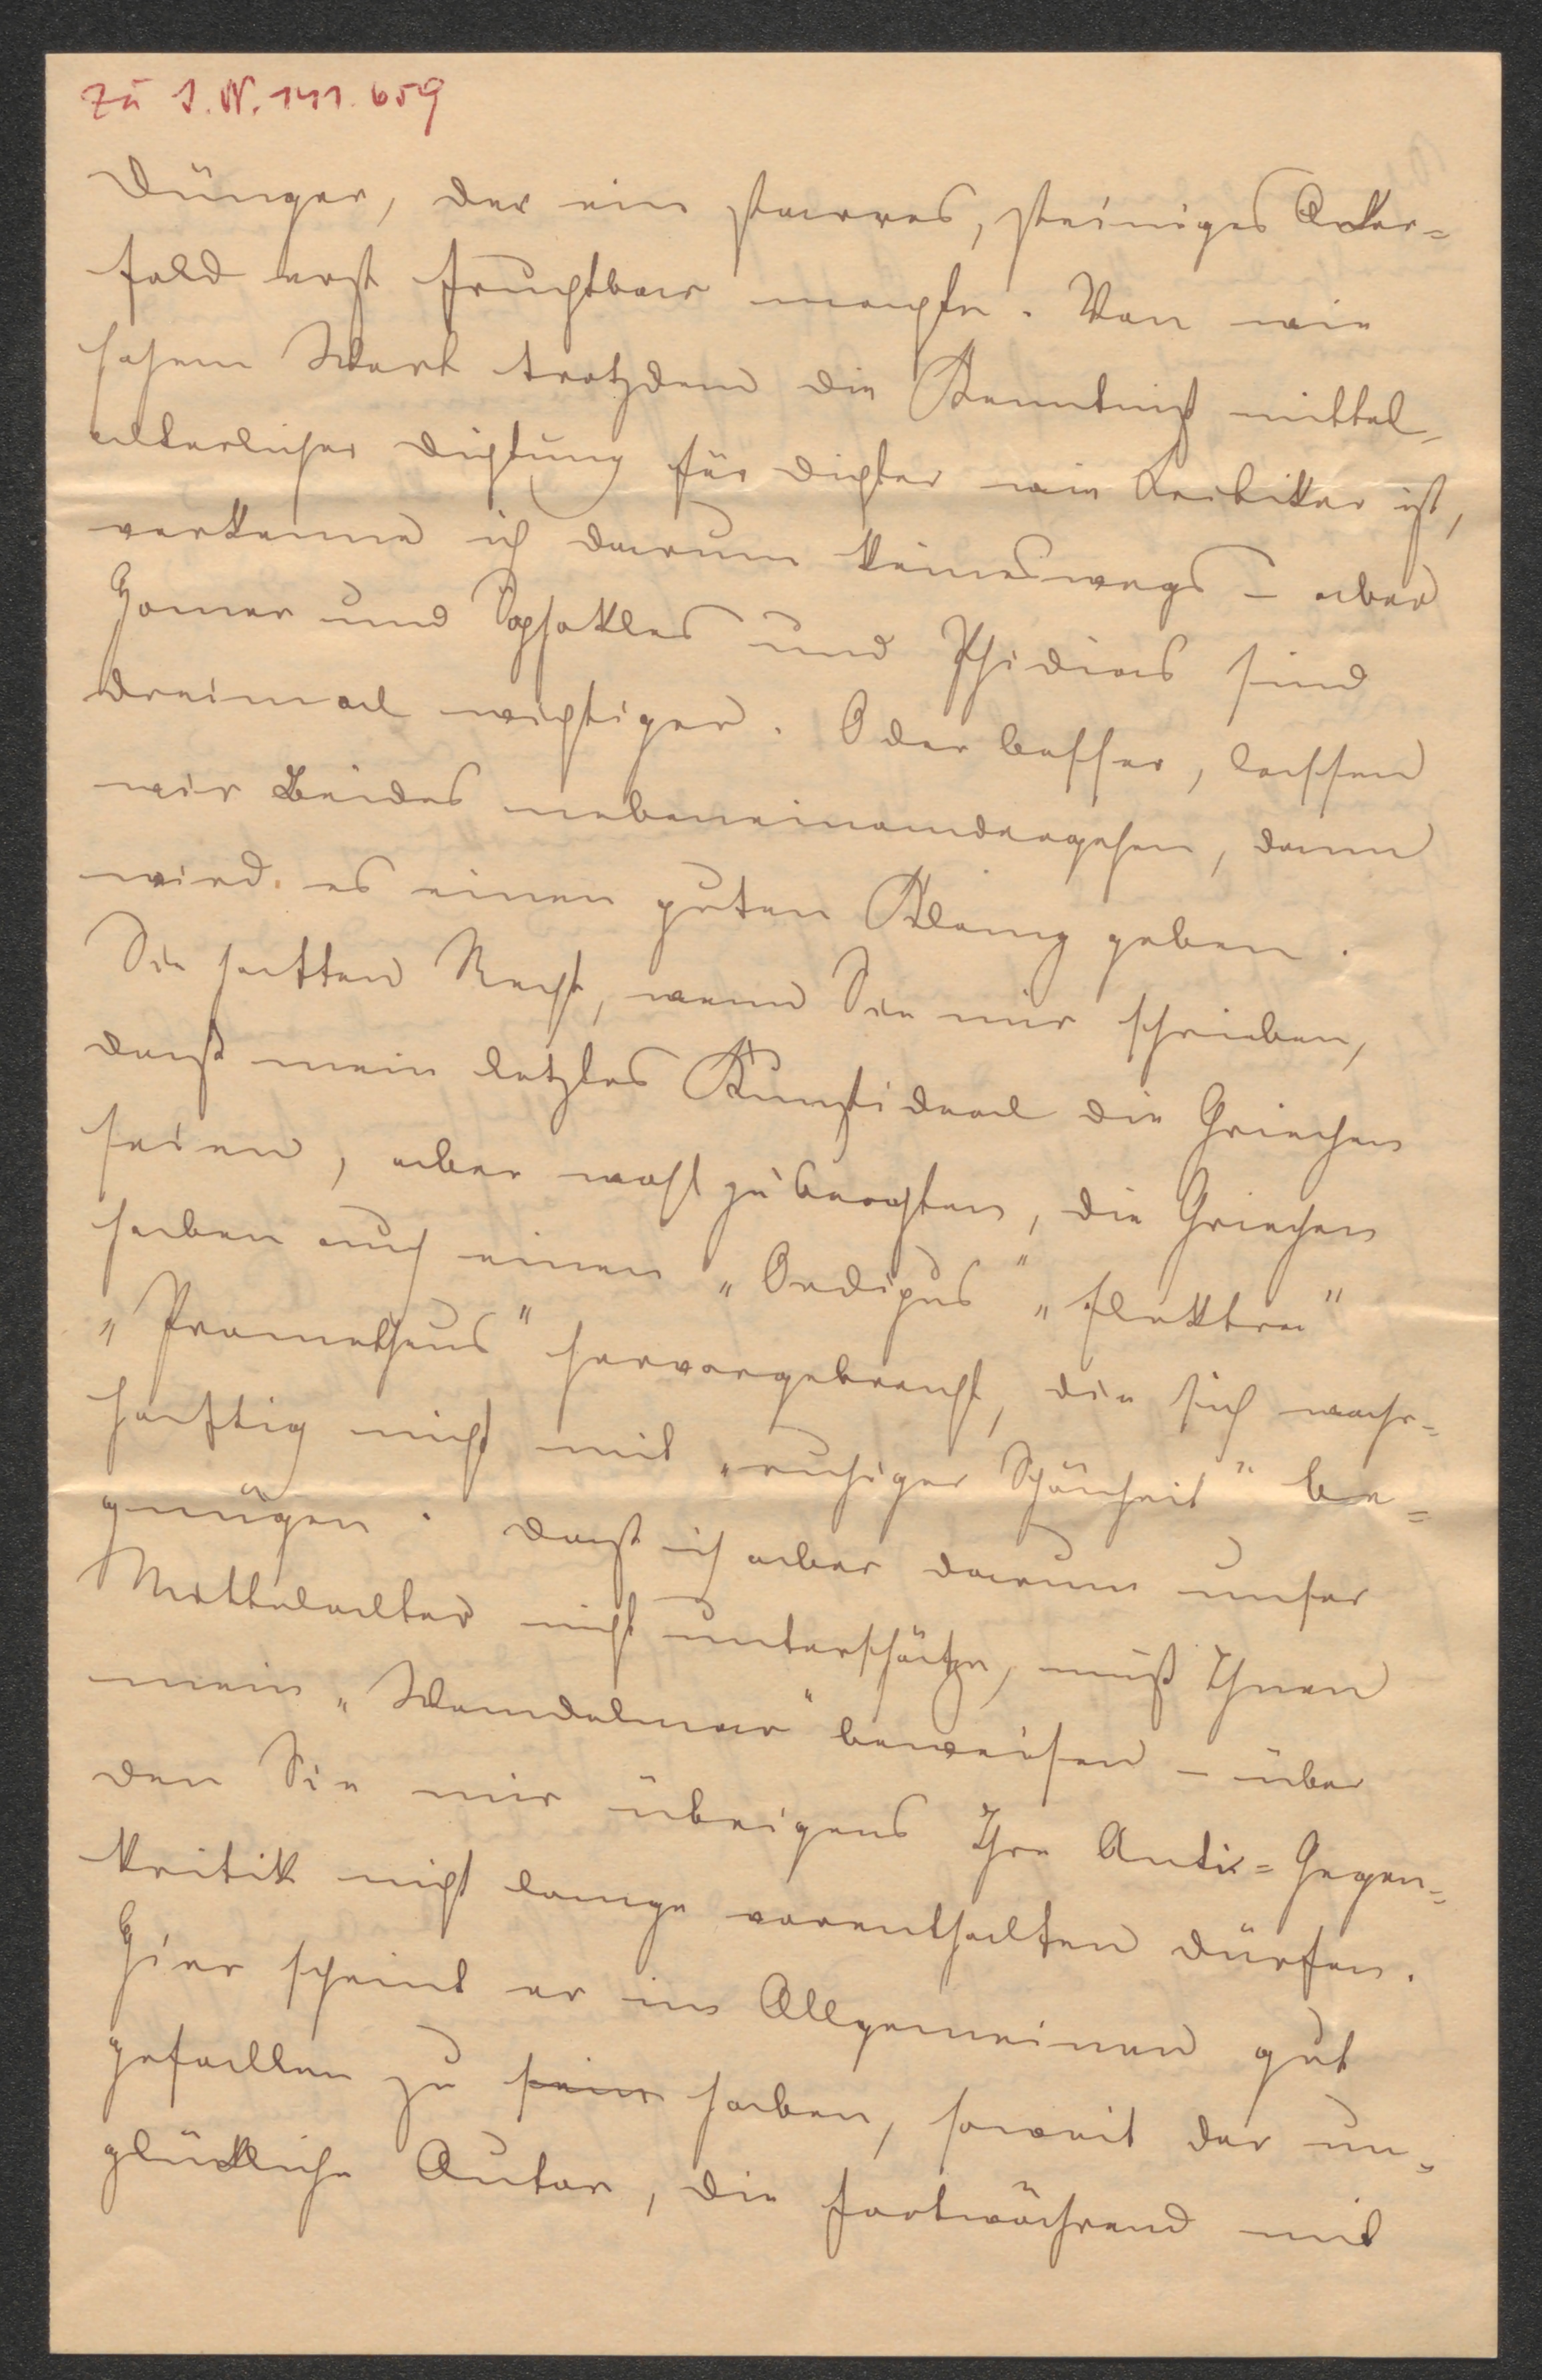 Zu I.N. 141.659
Dünger, der ein starres, steiniges Acker=
feld erst fruchtbar machte. Von wie
hohem Wert trotzdem die Kenntniß mittel-
alterlicher Dichtung für Dichter wie Kritiker ist,
verkenne ich darum keineswegs – aber
Homer und Sophokles und Phidias sind
dreimal wichtiger. Oder besser, lassen
wir Beides nebeneinandergehen, dann
wird es einen guten Klang geben.
Sie hatten Recht, wenn Sie mir schrieben,
daß mein letztes Kunstideal die Griechen
seien, aber wohl zu beachten, die Griechen
haben auch einen „Oedipus" „Elektra"
„Prometheus" hervorgebracht, die sich wahr=
haftig nicht mit „ruhiger Schönheit" be=
gnügen. Daß ich aber darum unser
Mittelalter nicht unterschätze, muß Ihnen
mein „Wendelmar" beweisen – über
den Sie mir übrigens Ihre Anti=Gegen=
kritik nicht lange vorenthalten dürfen.
Hier scheint er im Allgemeinen gut
gefallen zu sein haben, soweit der un=
glückliche Autor, die fortwährend mit